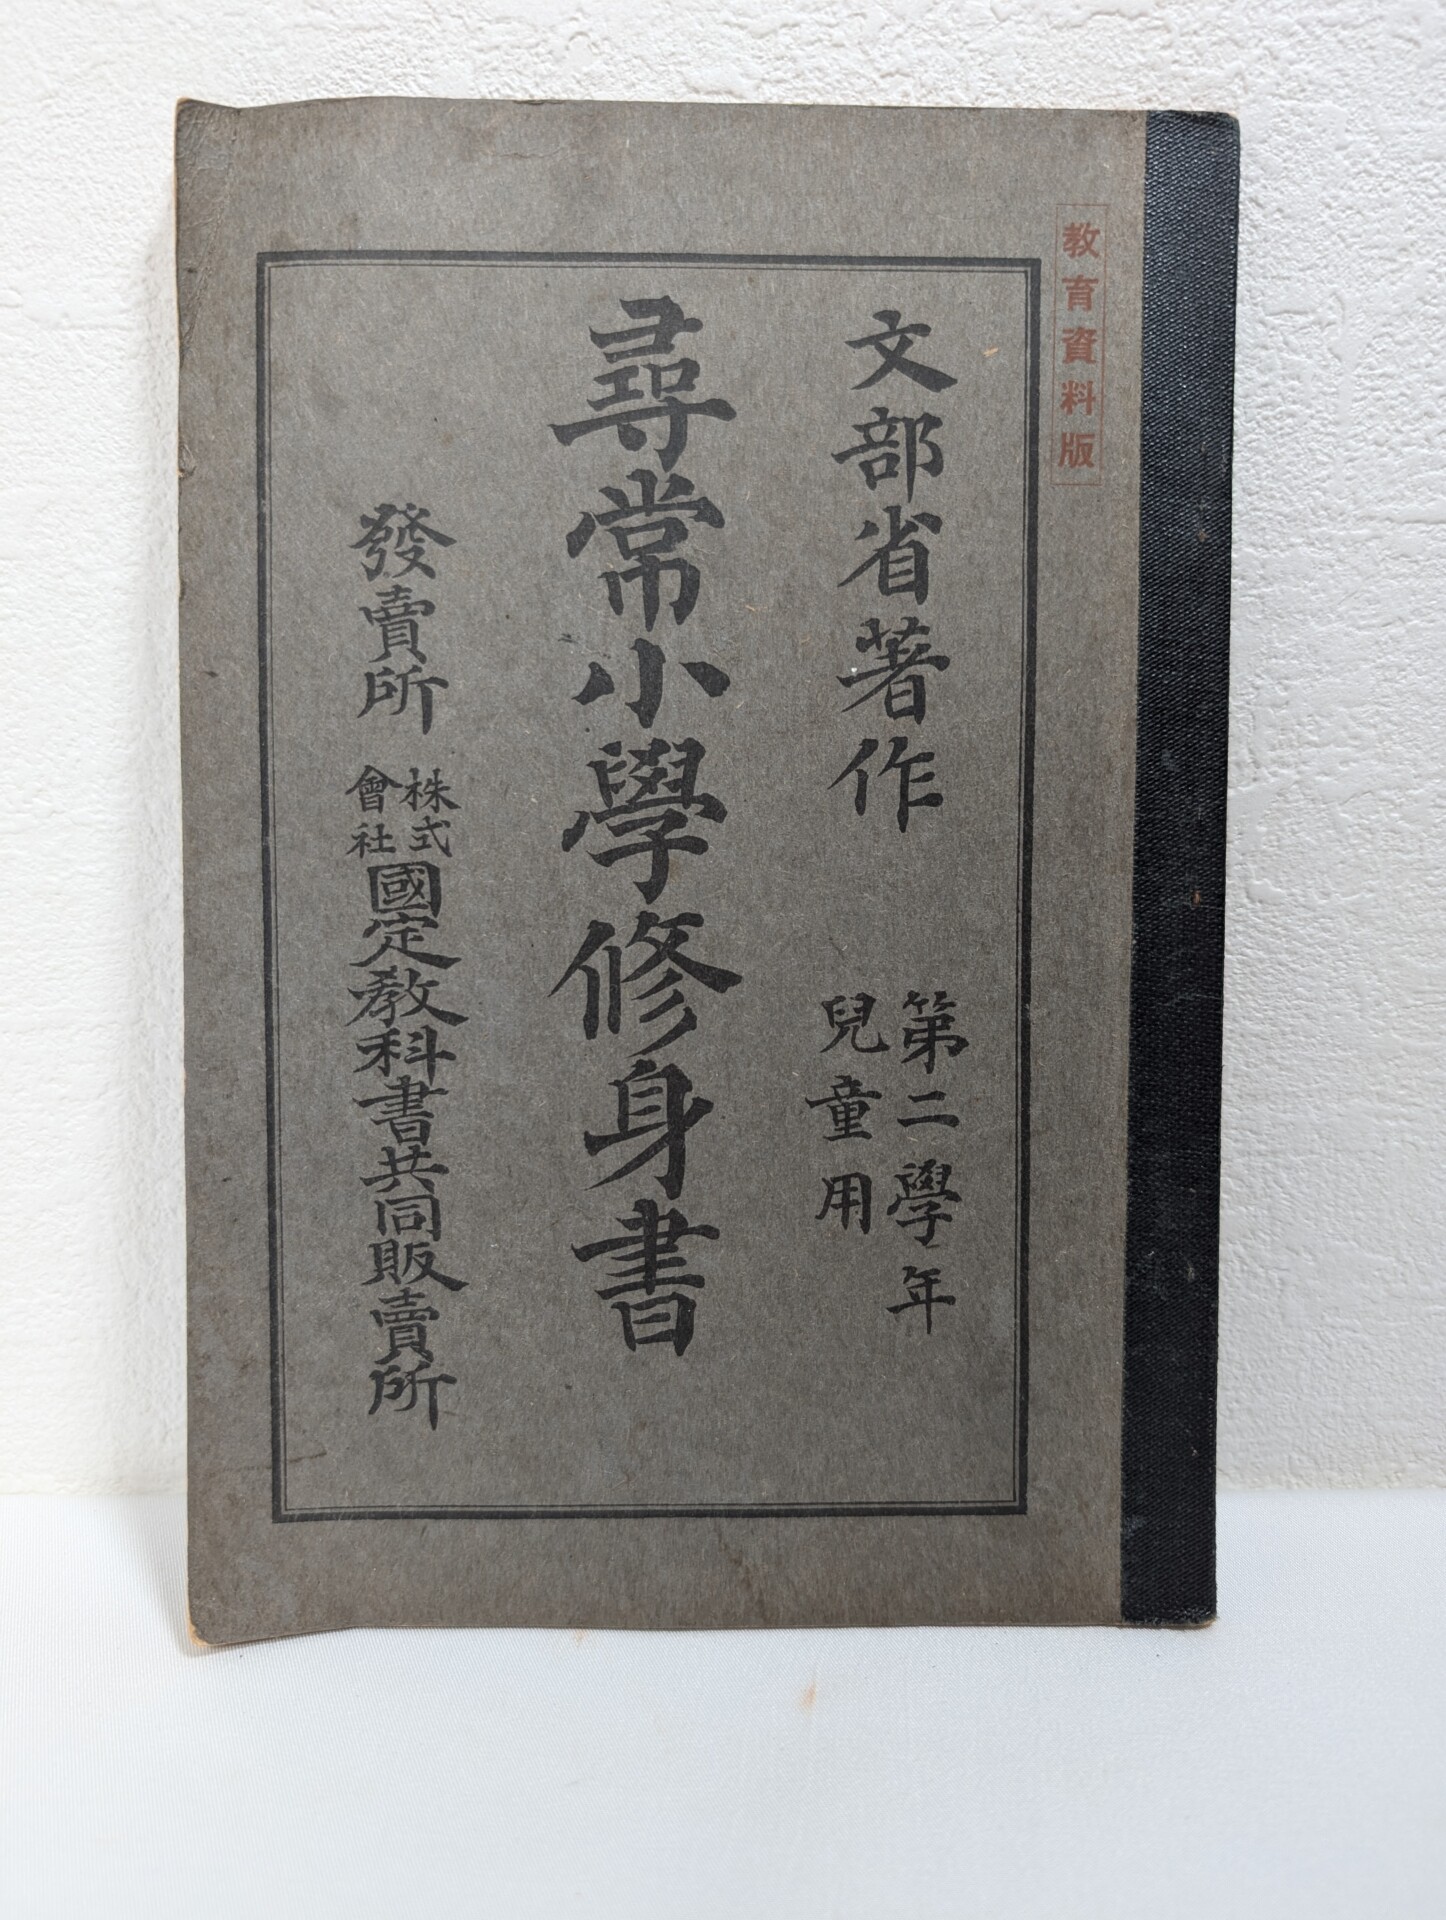 教育資料版
文部省著作
第二學年
兒童用
尋常小學修身書
發賣所
株式
會社
國定敎科書共同販賣所